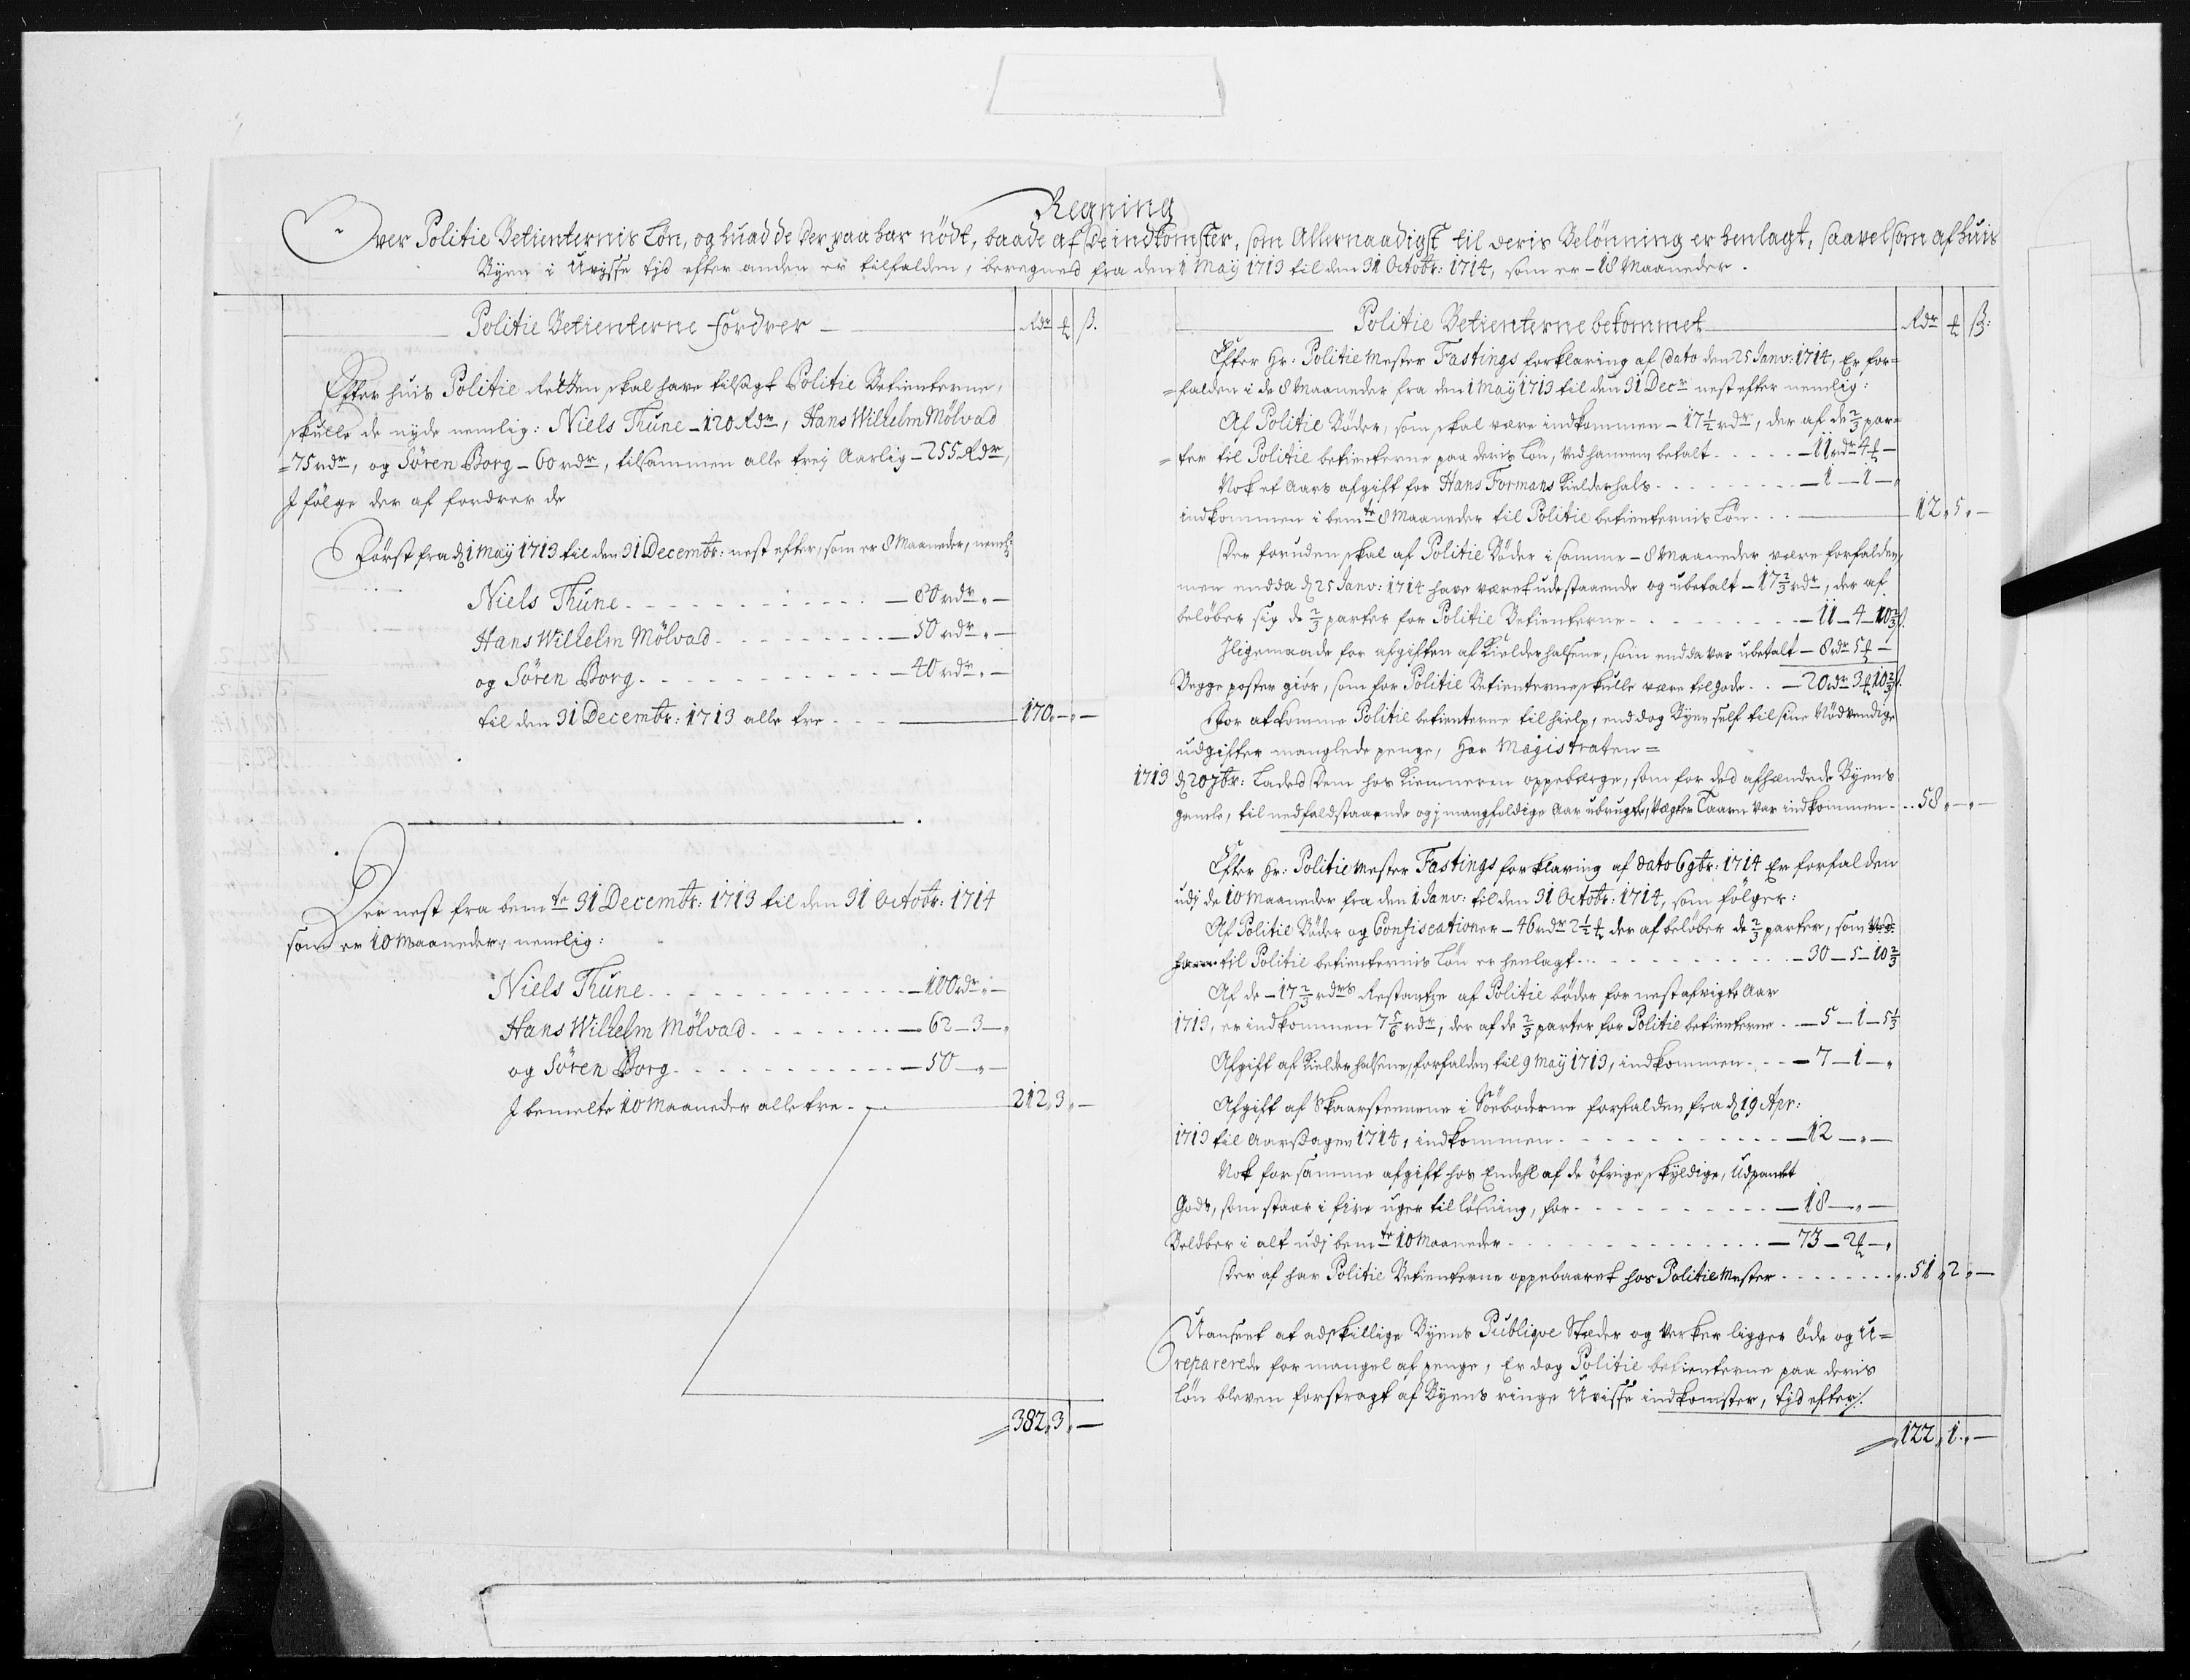 Regning
Over Politie Betienternis Løn, og huad de der paa har nödt, baade af de indkomster, som Allernaadigst til deris Belønning er henlagt, saavelsom af huis
Byen i Uvisse tid efter anden er tilfalden, beregned fra den 1 May 1713 til den 31 Octobr: 1714, som er - 18 Maaneder.
Politie Betienterne fordrer — Rdr ₰ ß.
Efter huis Politie Retten skal have tilsagt Politie Betienterne,
skulle de nyde nemlig: Niels Thune - 120 Rdr, Hans Wilhelm Mölvad
- 75 rdr, og Sören Borg - 60 rdr, tilsammen alle trej Aarlig - 255 Rdr,
J fölge der af fordrer de
Först fra d 1 May 1713 til den 31 Decembr: nest efter, som er 8 Maaneder, neml:
Niels Thune - - - - — 80 rdr „ —
Hans Wilhelm Mölvad - - - - — 50 rdr „ —
og Sören Borg - - - - — 40 rdr „ —
til den 31 Decembr: 1713 alle tre - - - 170 „ — „ —
Der nest fra bemte 31 Decembr: 1713 til den 31 Octobr: 1714
som er 10 Maaneder, nemlig:
Niels Thune - - - - — 100 rdr „ —
Hans Wilhelm Mölvad - - - - — 62 — 3 — „
og Sören Borg - - - - — 50 — „ —
J bemelte 10 Maaneder alle tre - 212 „ 3 „ —
382 „ 3 „ —
Politie Betienterne bekommet Rdr ₰ ß:
Efter Hr: Politie Mester Fastings forklaring af Dato den 25 Janv: 1714, Er for=
=falden i de 8 Maaneder fra den 1 May 1713 til den 31 Decr nest efter nemlig:
Af Politie Böder, som skal være indkommen - 17 1/2 rdr, der af de 2/3 par=
=ter til Politie betienterne paa deris Løn, ved hannem betalt - - - — 11 rdr 4 ₰ —
Nok et Aars afgift for Hans Formans Kielderhals - - - — 1 — 1 — „
indkommen i bemte 8 Maaneder til Politie betienternis Løn - - - 12 „ 5 „ —
Der foruden skal af Politie Böder i samme - 8 Maaneder være forfalden,
men endda d 25 Janv: 1714 have været udestaaende og ubetalt - 17 2/3 rdr, der af
beløber sig de 2/3 parter for Politie Betienterne - - - — 11 — 4 — 10 2/3 ß.
Jligemaade for afgiften af Kielderhalsene, som endda var ubetalt — 8 rdr 5 ₰ —
Begge poster giör, som for Politie Betienterne skulle være til gode - - — 20 rdr 3 ₰ 10 2/3 ß.
For at komme Politie betienterne til hielp, end dog Byen self til sine Nödvendige
udgifter manglede penge, har Magistraten =
1713 d 20 7br: Lades Dem hos Kiemneren oppebærge, som for ded afhændede Byens
gamle, til nedfald staaende og i mangfoldige Aar ubrugte, Vegter Taarn var indkommen - - 58 „ — „ —
Efter Hr: Politie Mester Fastings forklaring af dato 6 9br: 1714 Er forfalden
udj de 10 Maaneder fra den 1 Janv: til den 31 Octobr: 1714, som følger:
Af Politie Böder og Confiscationer - 46 rdr 2 1/2 ₰ der af beløber de 2/3 parter, som
til Politie betienternis Løn er henlagt - - - — 30 — 5 — 10 2/3
Af de - 17 2/3 rdrs Restantze af Politie böder for nest afvigte Aar
1713, er indkommen 7 5/6 rdr, der af de 2/3 parter for Politie betienterne - - — 5 — 1 — 5 1/3
Afgift af Kielderhalsene, forfalden til 9 May 1713, indkommen - - - — 7 — 1 — „
Afgift af Skaarstennene i Söeboderne forfalden fra d 19 Apr:
1713 til Aarsdagen 1714, indkommen - - - — 12 — „ —
Nok for samme afgift hos Endehl af de öfrige skyldige, Udpantet
Gods, som staar i fire uger til løsning, for - - - — 18 — „ —
Beløber i alt udj bemte 10 Maaneder - - - — 73 — 2 ₰ — „
Der af har Politie Betienterne oppebaaret hos Politie Mester - - - 51 „ 2 „ —
Uanseet at adskillige Byens Publiqve Stæder og Verker ligger öde og U=
reparerede for mangel af penge, Er dog Politie betienterne paa deris
Løn bleven forstragt af Byens ringe Uvisse indkomster, tid efter
122 „ 1 „ —